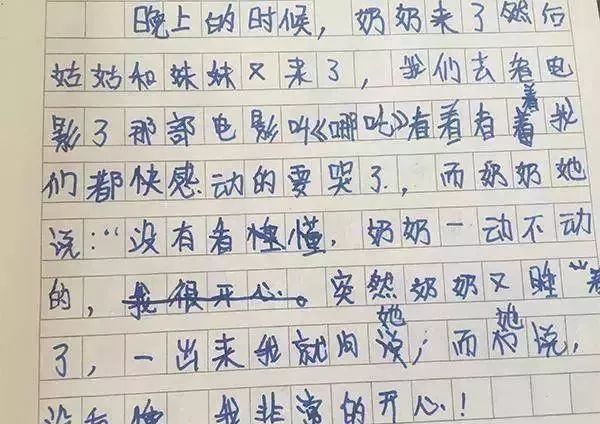 晚上的时候，奶奶来了然后
姑姑和妹妹又来了，我们去看电
影了那部电影叫《哪吒》看着看着我
们都快感动的要哭了，而奶奶她
说：“没有看懂，奶奶一动不动
的，我很开心。突然奶奶又睡“着
了，一出来我就问她，而她说，
没看懂 我非常的开心！